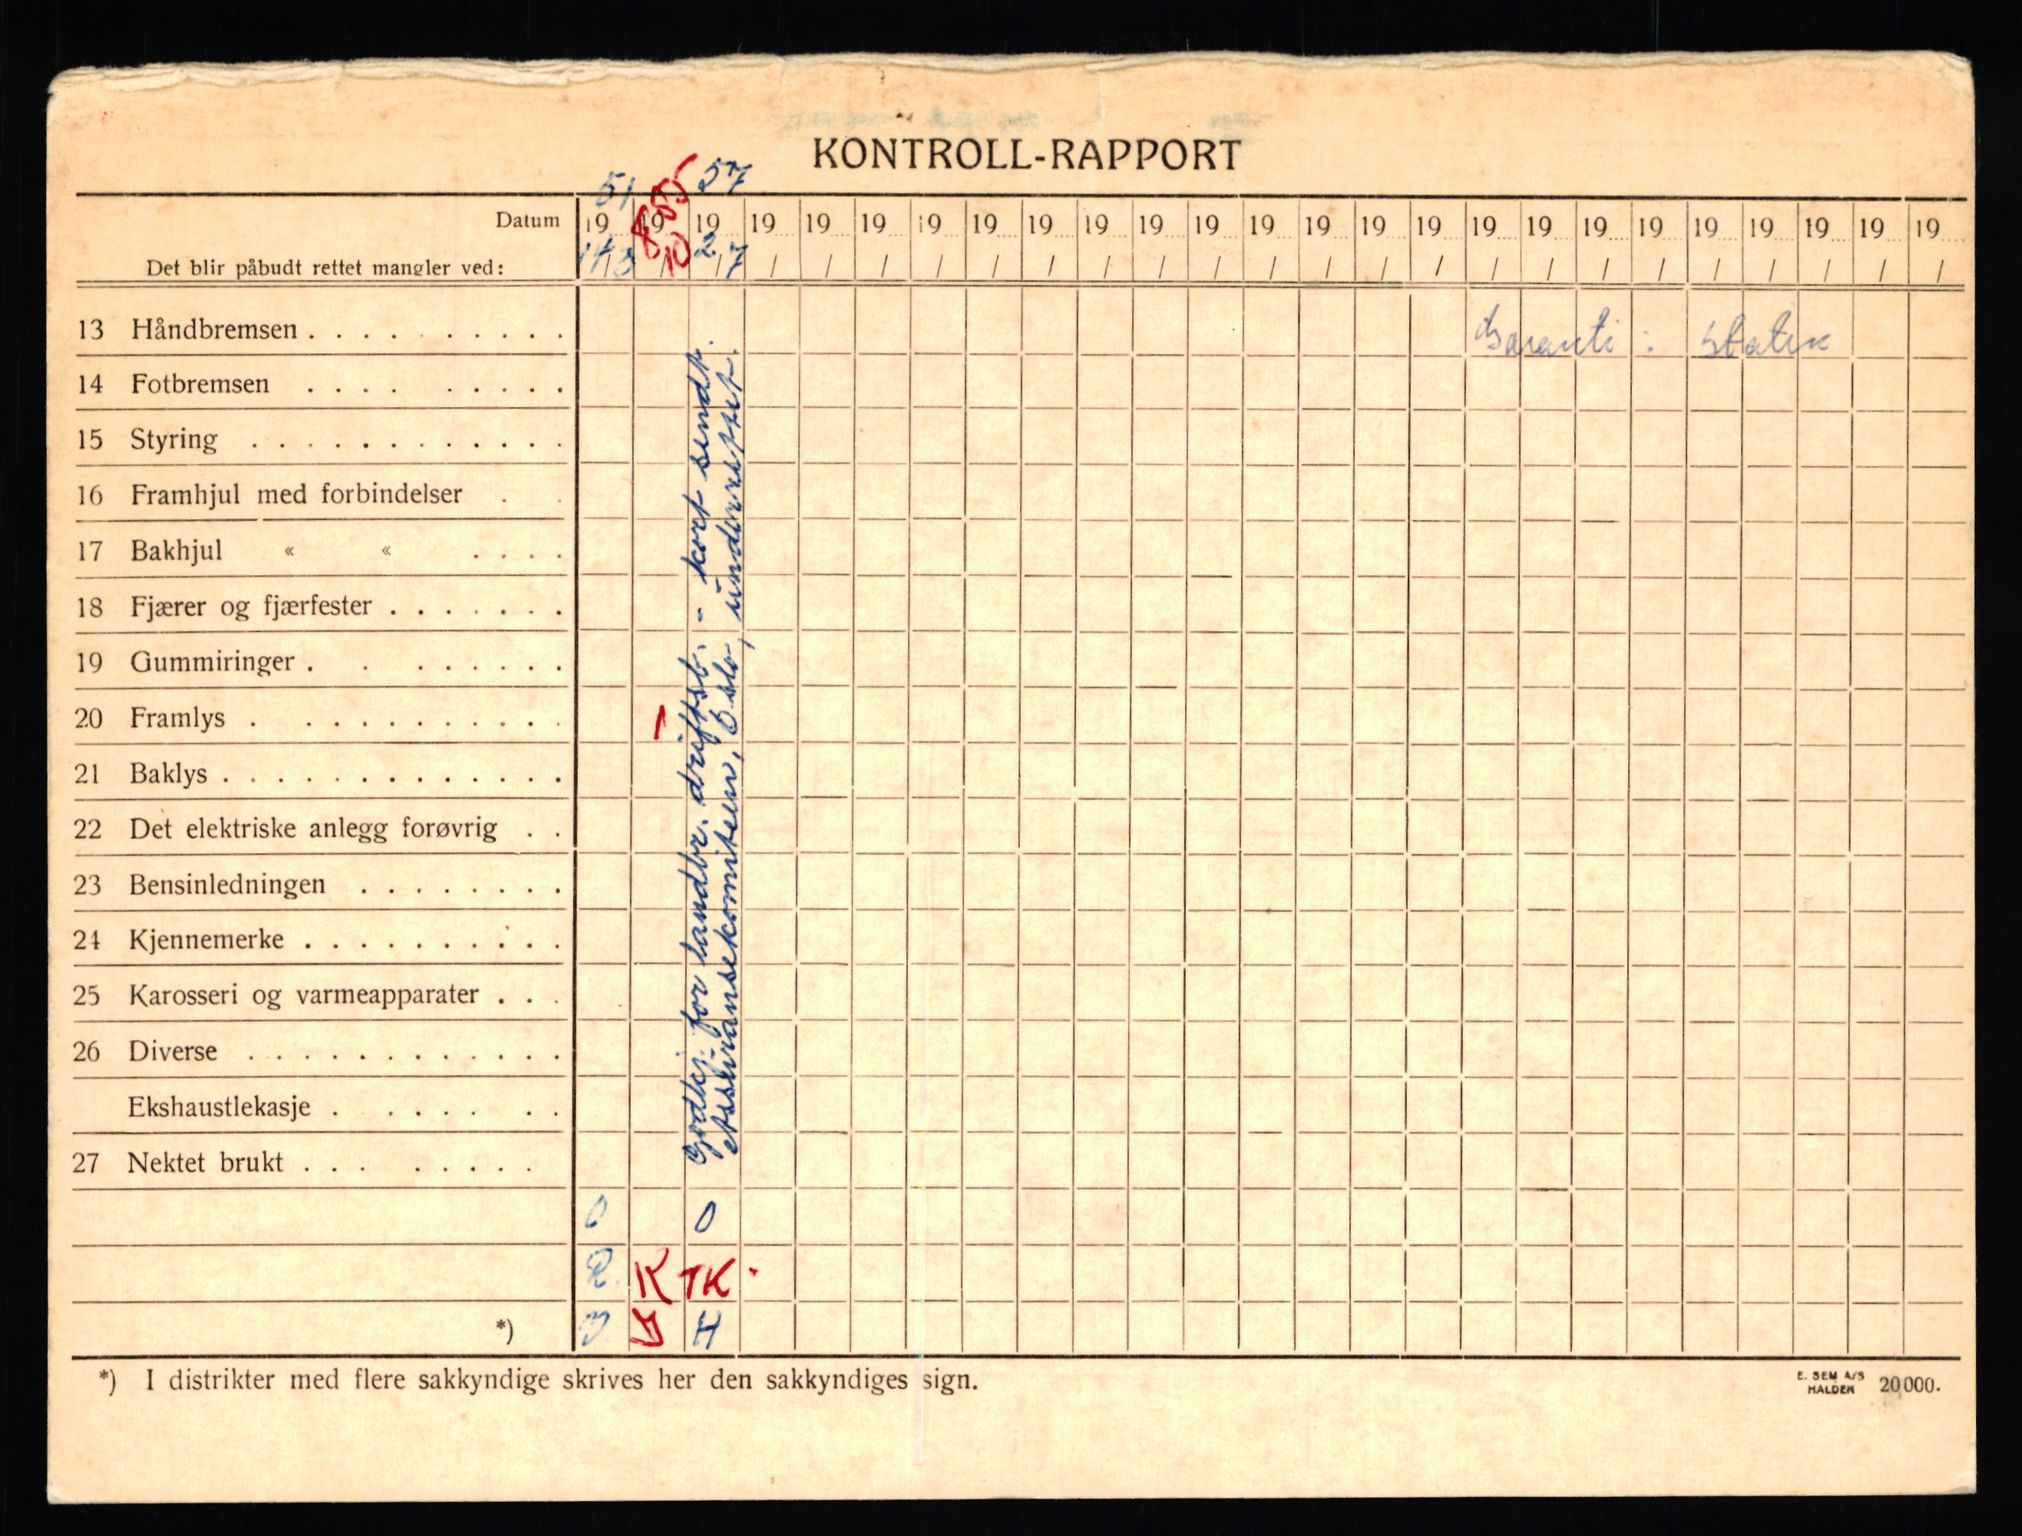 KONTROLL-RAPPORT
51 55 57
Datum 19 19 19 19 19 19 19 19 19 19 19 19 19 19 19 19 19 19 19 19 19 19 19 19 19
Det blir påbudt rettet mangler ved: 14/3 8/10 2/7 / / / / / / / / / / / / / / / / / / / / / /
13 Håndbremsen . . . . . . . . . .
Garanti : Staten
14 Fotbremsen . . . . . . . . .
15 Styring . . . . . . . . . . . .
16 Framhjul med forbindelser . .
17 Bakhjul « « . . . .
18 Fjærer og fjærfester . . . . . . .
19 Gummiringer . . . . . . . .
20 Framlys . . . . . . . . . . .
21 Baklys . . . . . . . . . . . . .
22 Det elektriske anlegg forøvrig . .
23 Bensinledningen . . . . . . . .
24 Kjennemerke . . . . . . . . . .
25 Karosseri og varmeapparater . . .
26 Diverse . . . . . . . . . . . .
Ekshaustlekasje . . . . . . .
27 Nektet brukt . . . . . . . .
Godkj. for landbr. driftsb. - kort sendt.
Assuransekomiteen, Oslo, underrettet.
O O
R K TK.
H
*)
*) I distrikter med flere sakkyndige skrives her den sakkyndiges sign.
E. SEM A/S
HALDEN 20000.